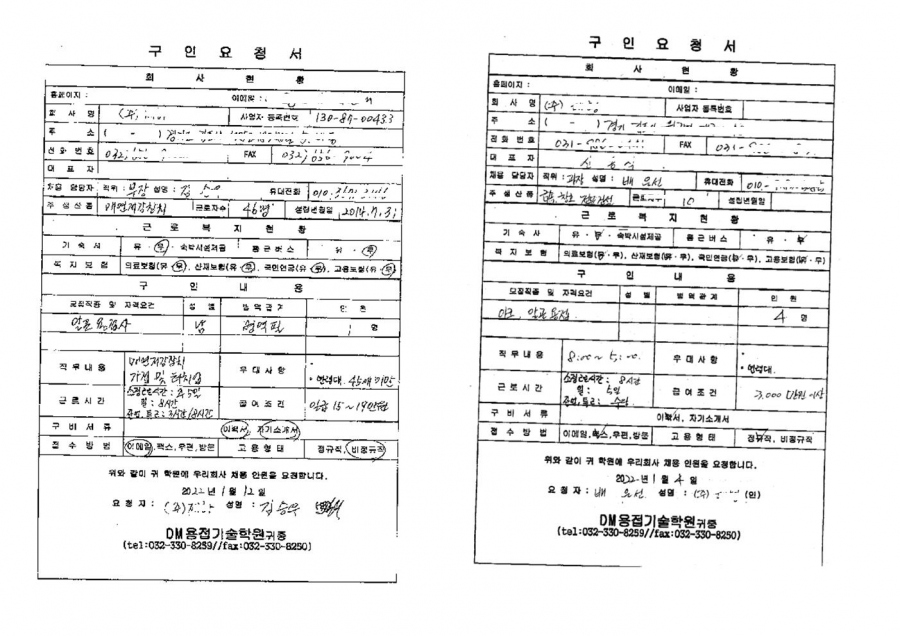 구 인 요 청 서
회 사 현 황
홈페이지 : 이메일 :
회 사 명 (주) 사업자 등록번호 130-87-00433
주 소 ( - )
전화 번호 032, FAX 032,
대 표 자
채용 담당자 직위: 부장 성명 : 김 휴대전화 010
주 생산품 매연저감장치 근로자수 46명 설립년월일 2014.7.3
근 로 복 지 현 황
기 숙 사 유 · 무 · 숙박시설제공 통근버스 유 · 무
복 지 보 험 의료보험(유·무), 산재보험(유·무), 국민연금(유·무), 고용보험(유·무)
구 인 내 용
모집직종 및 자격요건 성 별 병역관계 인 원
알곤 용접사 남 병역필 1 명
직무내용 매연저감장치 가접 및 우대사항 · · 연령대. 45세 미만
근로시간 소정근로시간 : 주5일 일 : 8시간 급여조건 일급 15~19만원
구 비 서 류 이력서, 자기소개서
접 수 방 법 이메일, 팩스, 우편, 방문 고 용 형 태 정규직, 비정규직
위와 같이 귀 학원에 우리회사 채용 인원을 요청합니다.
2022년 1월 12일
요 청 자 : (주) 성명 : 김승
DM용접기술학원귀중
(tel:032-330-8259//fax:032-330-8250)
구 인 요 청 서
회 사 현 황
홈페이지 : 이메일 :
회 사 명 (주) 사업자 등록번호
주 소 ( - ) 경기
전화 번호 031- FAX 031-
대 표 자
채용 담당자 직위 : 과장 성명 : 배 휴대전화 010-
주 생산품 근로자수 10 설립년월일
근 로 복 지 현 황
기 숙 사 유 · 무 · 숙박시설제공 통근버스 유 · 무
복 지 보 험 의료보험(유·무), 산재보험(유·무), 국민연금(유·무), 고용보험(유·무)
구 인 내 용
모집직종 및 자격요건 성 별 병역관계 인 원
아크, 알곤용접 4 명
직무내용 8:00~5:00. 우대사항 · · 연령대.
근로시간 소정근로시간 : 8시간 일 : 5일 급여조건 3,000 만원 이상
구 비 서 류 이력서, 자기소개서
접 수 방 법 이메일, 팩스, 우편, 방문 고 용 형 태 정규직, 비정규직
위와 같이 귀 학원에 우리회사 채용 인원을 요청합니다.
2022년 1월 4일
요 청 자 : 배 성명 : (주) (인)
DM용접기술학원귀중
(tel:032-330-8259//fax:032-330-8250)